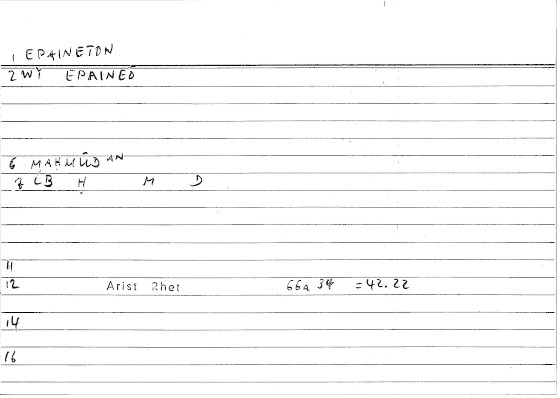 1 EPAINETON
2 WT EPAINEO
6 MAḤMŪD AN
7 LB Ḥ M D
11
12 Arist Rhet 66a 34 = 42.22
14
16